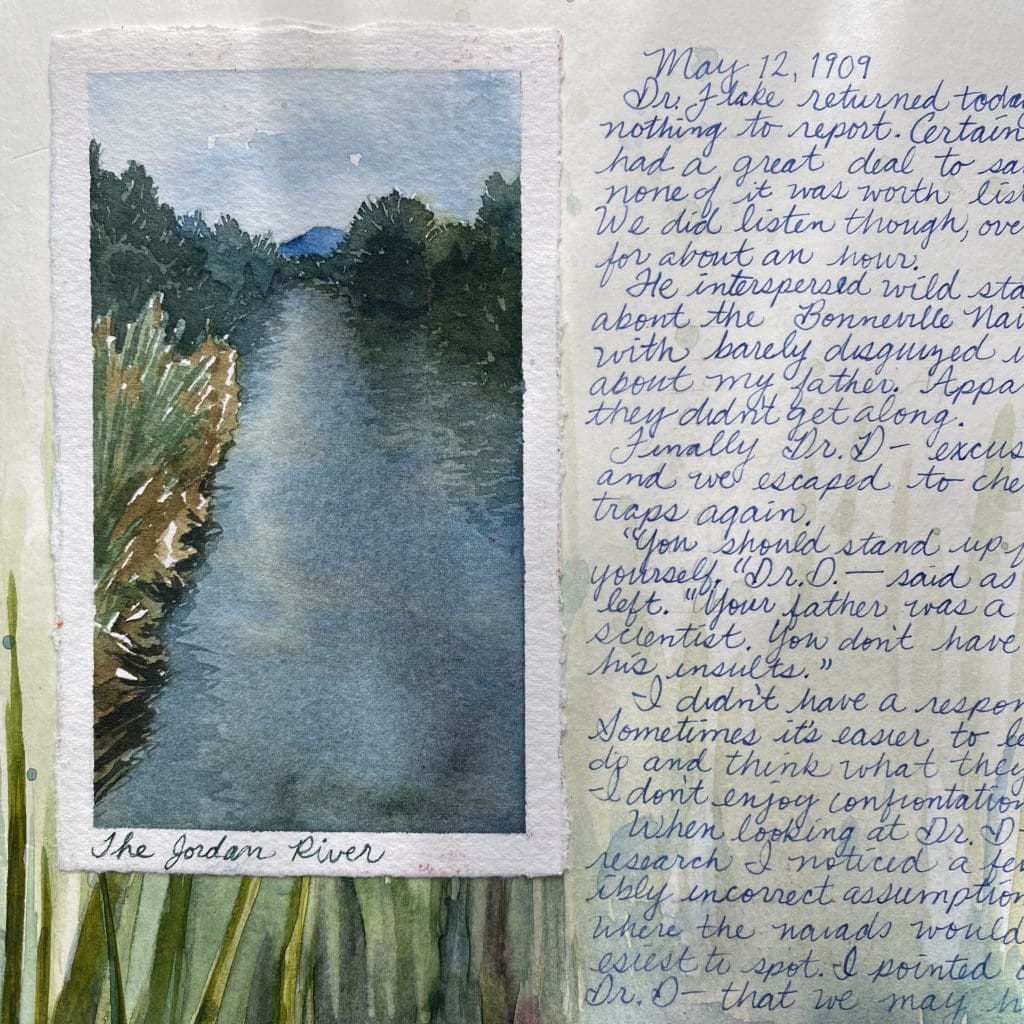 The Jordan River
May 12, 1909
Dr. Flake returned today
nothing to report. Certain
had a great deal to sa
none of it was worth list
We did listen though, ove
for about an hour.
He interspersed wild sta
about the Bonneville Nai
with barely disguized i
about my father. Appa
they didn't get along.
Finally Dr. D— excus
and we escaped to che
traps again.
"You should stand up f
yourself." Dr. D.— said as
left. "Your father was a
scientist. You don't have
his insults."
I didn't have a respon
Sometimes it's easier to le
do and think what they
I don't enjoy confrontation
When looking at Dr. D—
research I noticed a few
ibly incorrect assumption
where the naiads would
esiest to spot. I pointed o
Dr. D— that we may h